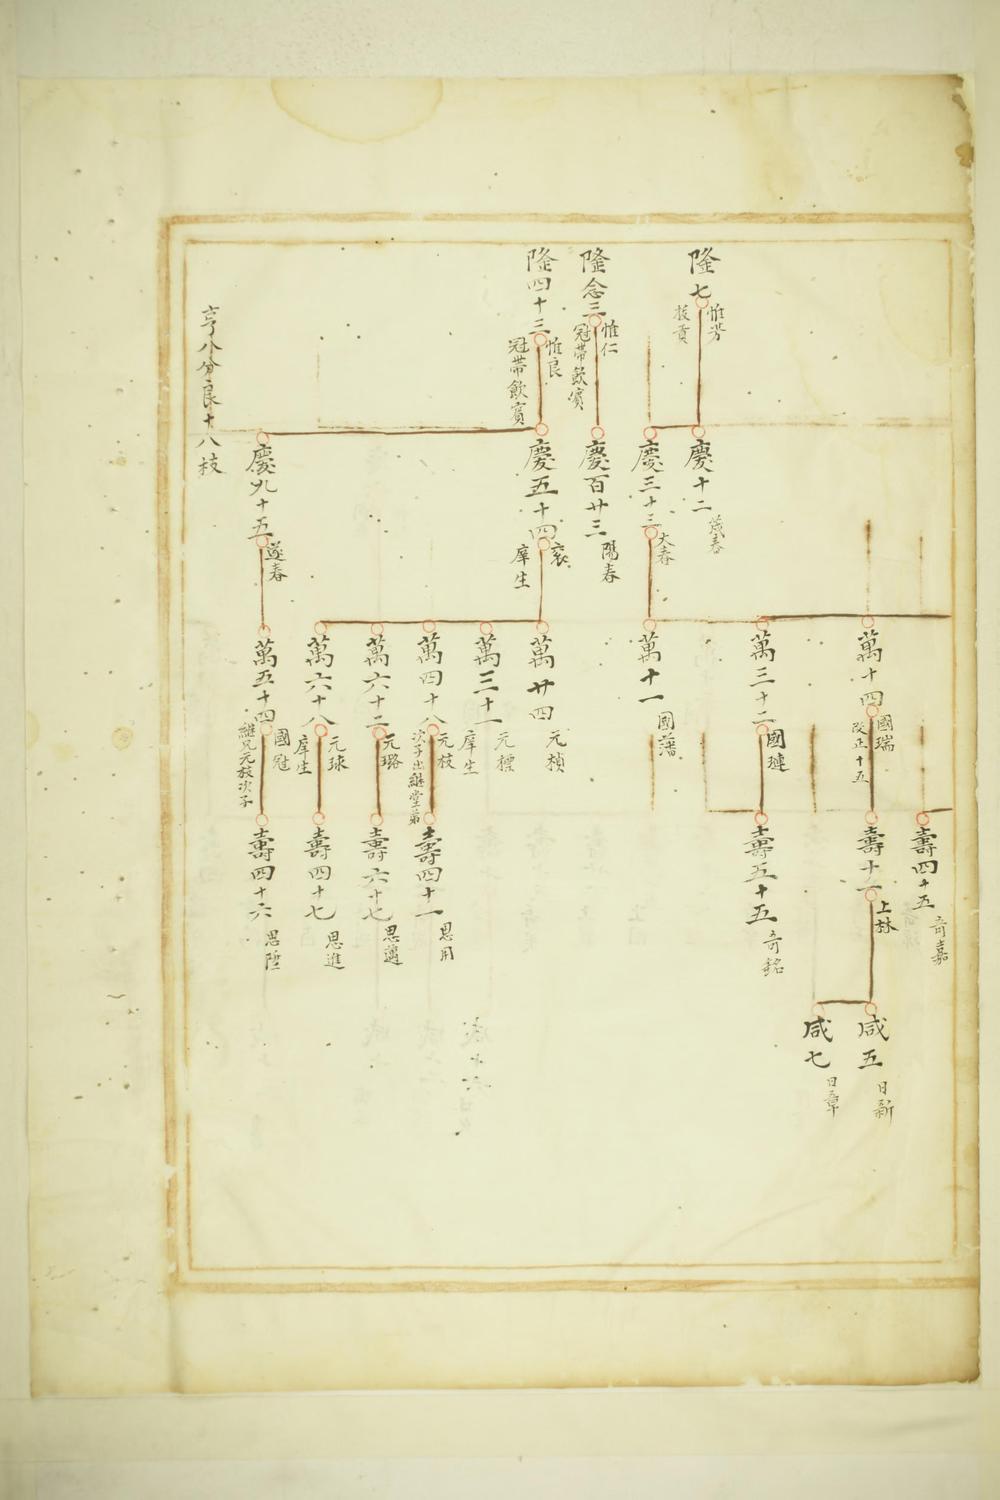 隆七
惟芳
隆念三
惟仁
冠帶飲賓
隆四十三
惟良
冠帶飲賓
亨八分良十八枝
慶十二
慶三十三
大春
慶百廿三
陽春
慶五十四
庠生
慶九十五
萬十四
國瑞
改正十五
萬三十二
國璉
萬十一
國藩
萬廿四
元楨
萬三十一
元標
庠生
萬四十八
元枝
次子出繼堂弟
萬六十二
元璐
萬六十八
元球
庠生
萬五十四
國冠
繼兄元枝次子
壽四十五
奇嘉
上林
壽五十五
奇銘
壽四十一
思用
壽六十七
思邁
壽四十七
思進
壽四十六
思陞
咸五
日新
咸七
日章